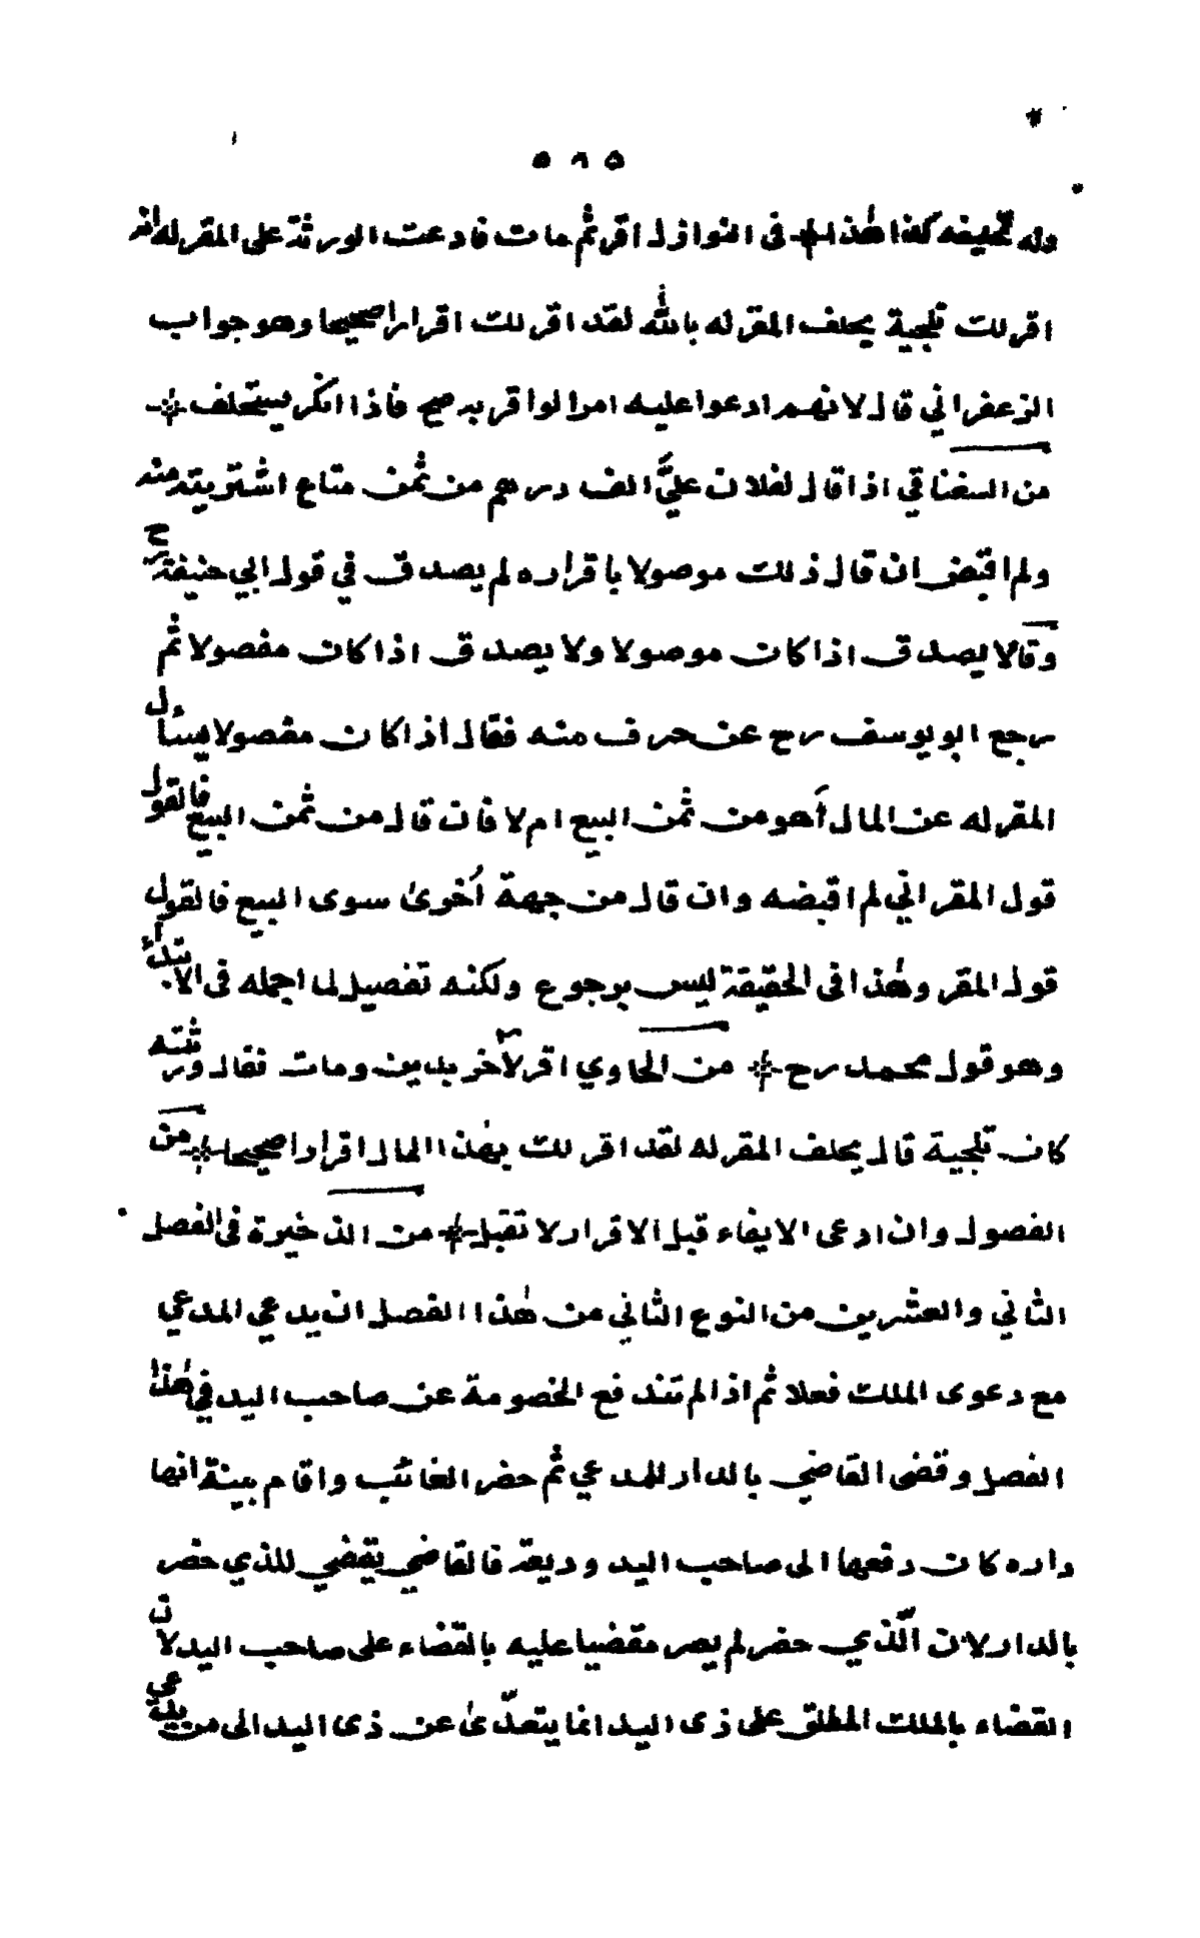 ٥٨٥
وله تحليفه كذا هٰذا * فى النوازل اقر ثم مات فادعت الورثة على المقر له انه
اقر لك تلجية يحلف المقر له بالله لقد اقر لك اقرارا صحيحا وهو جواب
الزعفراني قال لانهم ادعوا عليه امرا لو اقر به صح فاذا انكر يستحلف *
من السغناقي اذا قال لفلان عليّ الف درهم من ثمن متاع اشتريته منه
ولم اقبض ان قال ذلك موصولا باقراره لم يصدق في قول ابي حنيفة رح
وقالا يصدق اذا كان موصولا ولا يصدق اذا كان مفصولا ثم
رجع ابو يوسف رح عن حرف منه فقال اذا كان مفصولا يسأل
المقر له عن المال أهو من ثمن البيع ام لا فان قال من ثمن البيع فالقول
قول المقر اني لم اقبضه وان قال من جهة أخرىٰ سوى البيع فالقول
قول المقر وهٰذا فى الحقيقة ليس برجوع ولكنه تفصيل لما اجمله فى الابتداء
وهو قول محمد رح * من الحاوي اقر لآخر بدين ومات فقال ورثته
كان تلجية قال يحلف المقر له لقد اقر لك بهٰذا المال اقرارا صحيحا * من
الفصول وان ادعى الايفاء قبل الاقرار لا تقبل * من الذخيرة فى الفصل
الثاني والعشرين من النوع الثاني من هٰذا الفصل ان يدعي المدعي
مع دعوى الملك فعلا ثم اذا لم تندفع الخصومة عن صاحب اليد في هٰذا
الفصل وقضى القاضي بالدار للمدعي ثم حضر الغائب واقام بينة انها
داره كان دفعها الى صاحب اليد وديعة فالقاضي يقضي للذي حضر
بالدار لان الّذي حضر لم يصر مقضيا عليه بالقضاء على صاحب اليد لان
القضاء بالملك المطلق على ذى اليد انما يتعدّىٰ عن ذى اليد الى من يدعي